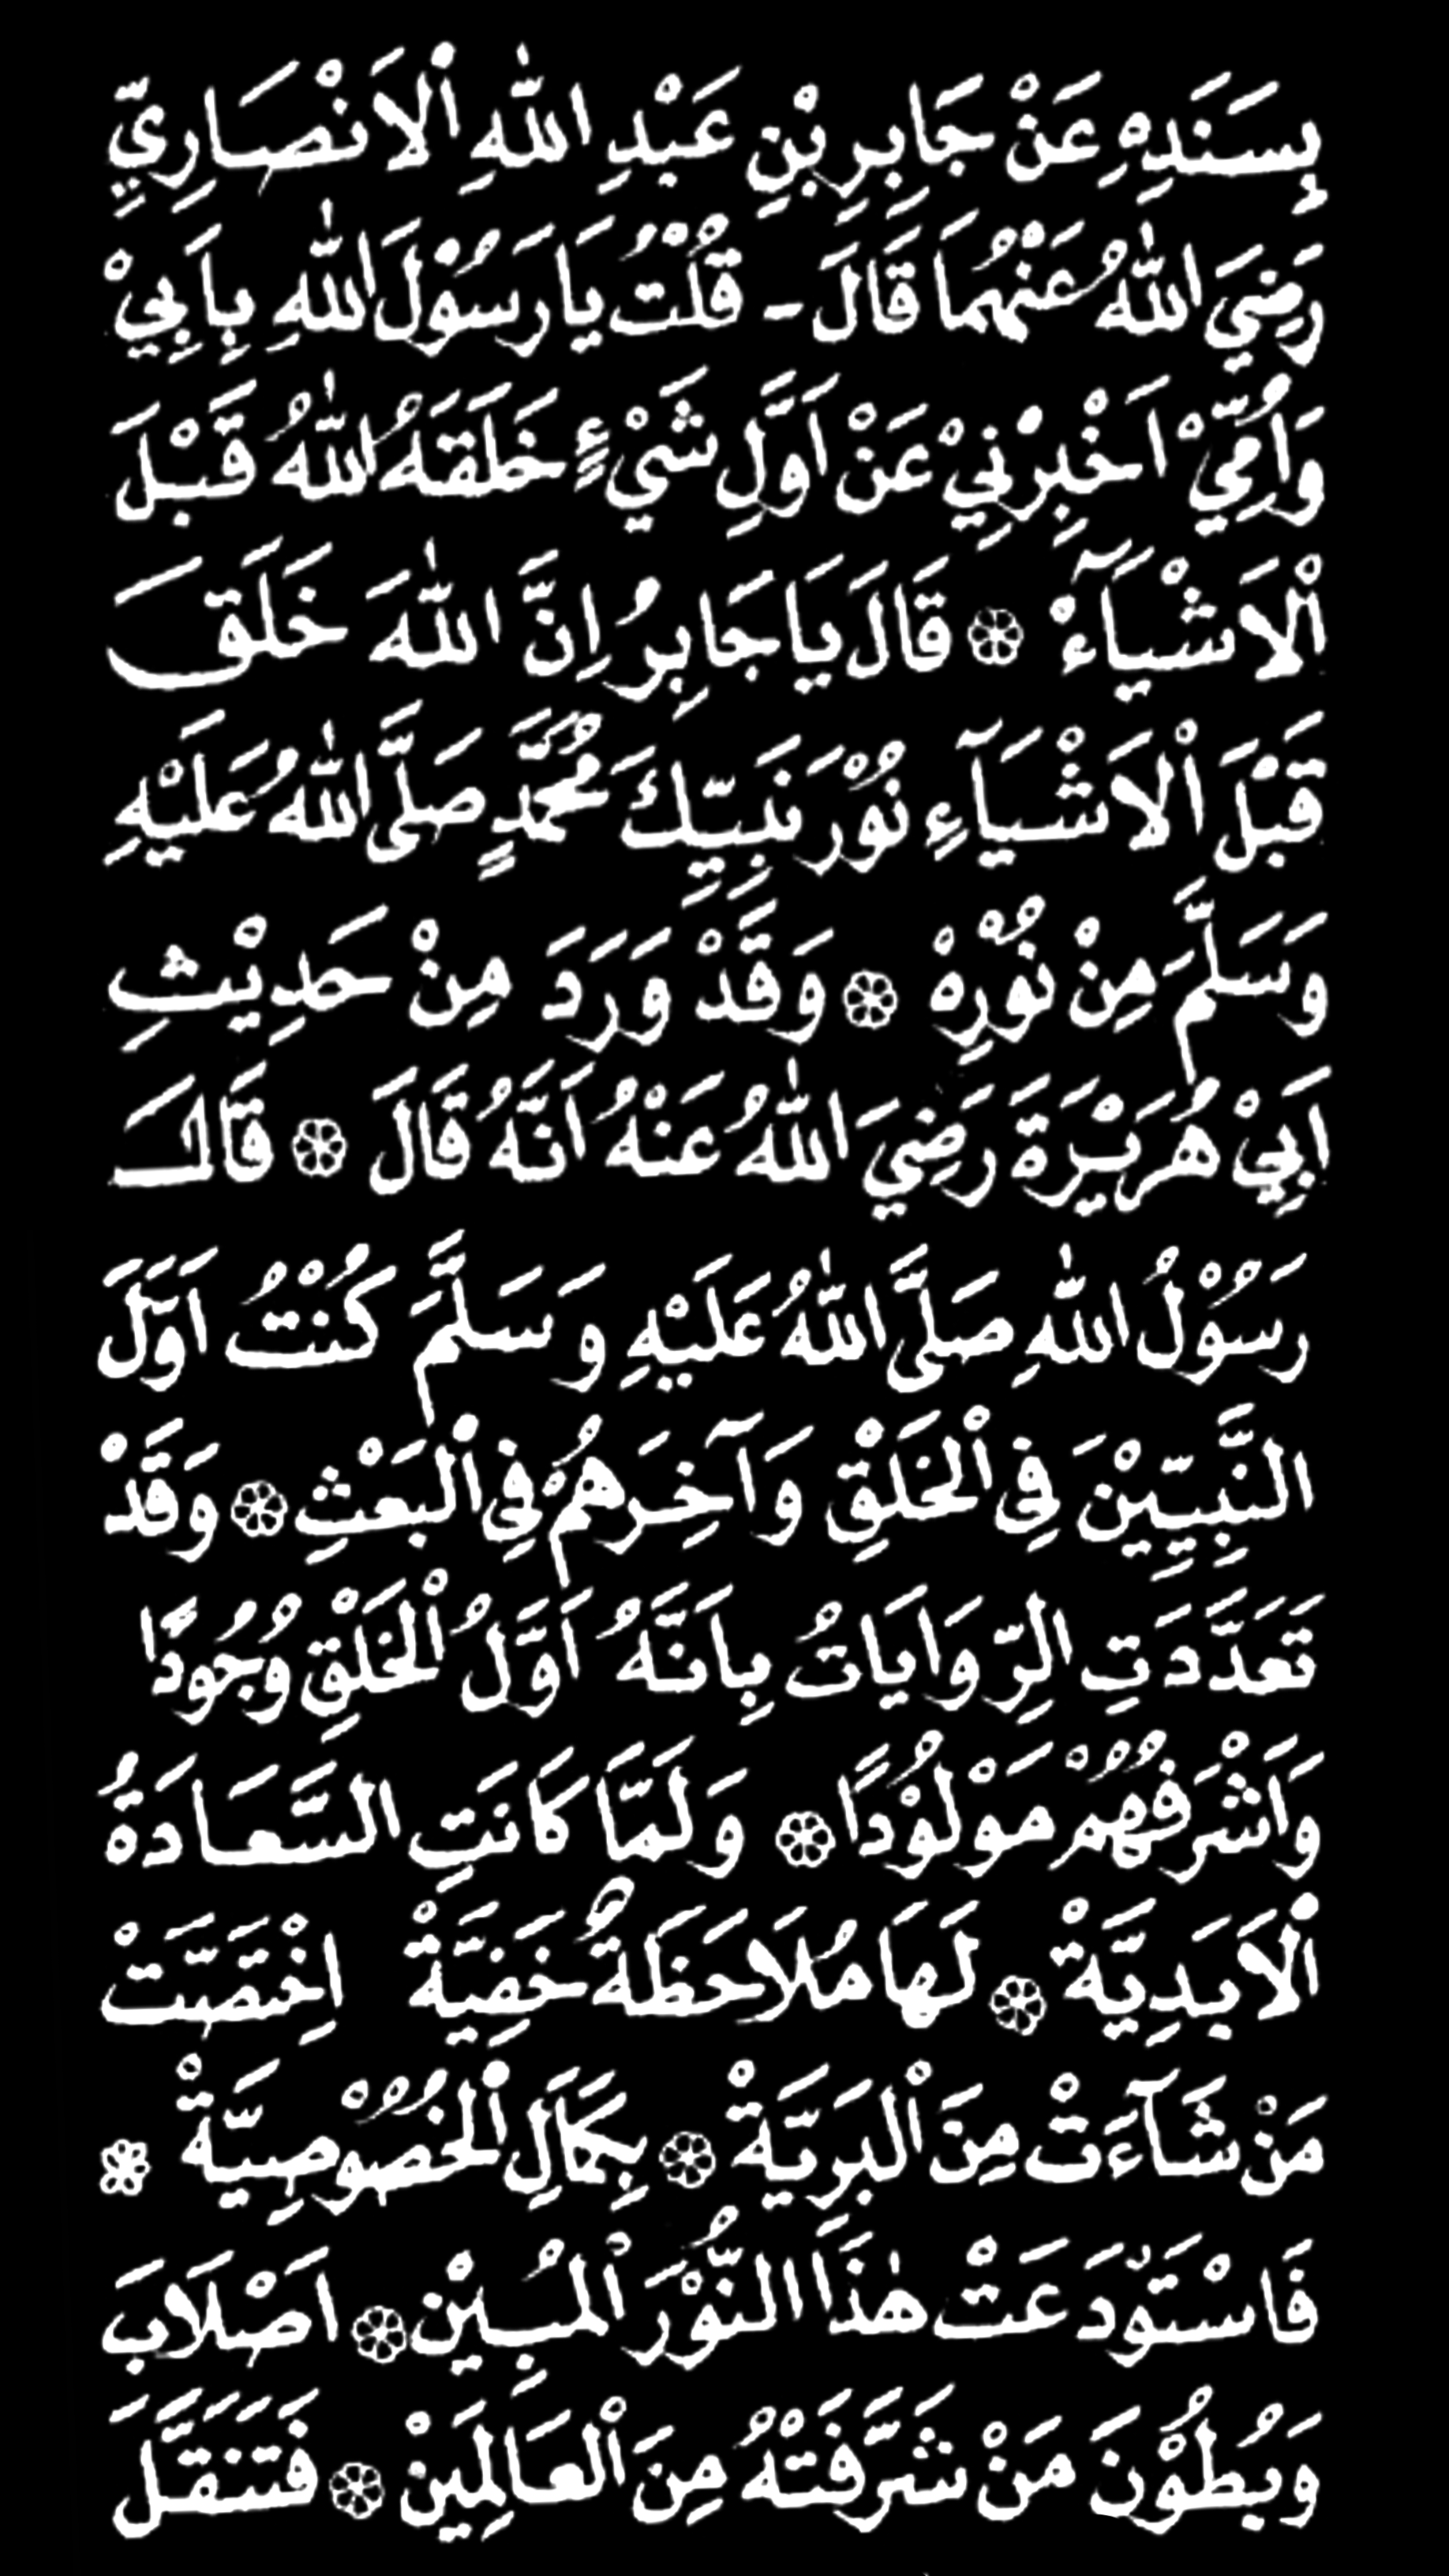 بِسَنَدِهِ عَنْ جَابِرِ بْنِ عَبْدِ اللهِ اْلاَنْصَارِيِّ
رَضِيَ اللهُ عَنْهُمَا قَالَ - قُلْتُ يَا رَسُوْلَ اللهِ بِاَبِيْ
وَاُمِّيْ اَخْبِرْنِيْ عَنْ اَوَّلِ شَيْءٍ خَلَقَهُ اللهُ قَبْلَ
اْلاَشْيَآءْ ۞ قَالَ يَا جَابِرُ اِنَّ اللهَ خَلَقَ
قَبْلَ اْلاَشْيَآءِ نُوْرَ نَبِيِّكَ مُحَمَّدٍ صَلَّى اللهُ عَلَيْهِ
وَسَلَّمَ مِنْ نُوْرِهْ ۞ وَقَدْ وَرَدَ مِنْ حَدِيْثِ
اَبِيْ هُرَيْرَةَ رَضِيَ اللهُ عَنْهُ اَنَّهُ قَالَ ۞ قَالَ
رَسُوْلُ اللهِ صَلَّى اللهُ عَلَيْهِ وَسَلَّمَ كُنْتُ اَوَّلَ
النَّبِيِّيْنَ فِي اْلخَلْقِ وَآخِرَهُمْ فِي اْلبَعْثِ ۞ وَقَدْ
تَعَدَّدَتِ الرِّوَايَاتُ بِاَنَّهُ اَوَّلُ اْلخَلْقِ وُجُودًا
وَاَشْرَفُهُمْ مَوْلُوْدًا ۞ وَلَمَّا كَانَتِ السَّعَادَةُ
اْلاَبَدِيَّةْ ۞ لَهَا مُلاَحَظَةٌ خَفِيَّةْ اِخْتَصَّتْ
مَنْ شَآءَتْ مِنَ اْلبَرِيَّةْ ۞ بِكَمَالِ اْلخُصُوْصِيَّةْ ۞
فَاسْتَوْدَعَتْ هٰذَا النُّوْرَ اْلمُبِيْنْ ۞ اَصْلَابَ
وَبُطُوْنَ مَنْ شَرَّفَتْهُ مِنَ اْلعَالَمِيْنْ ۞ فَتَنَقَّلَ